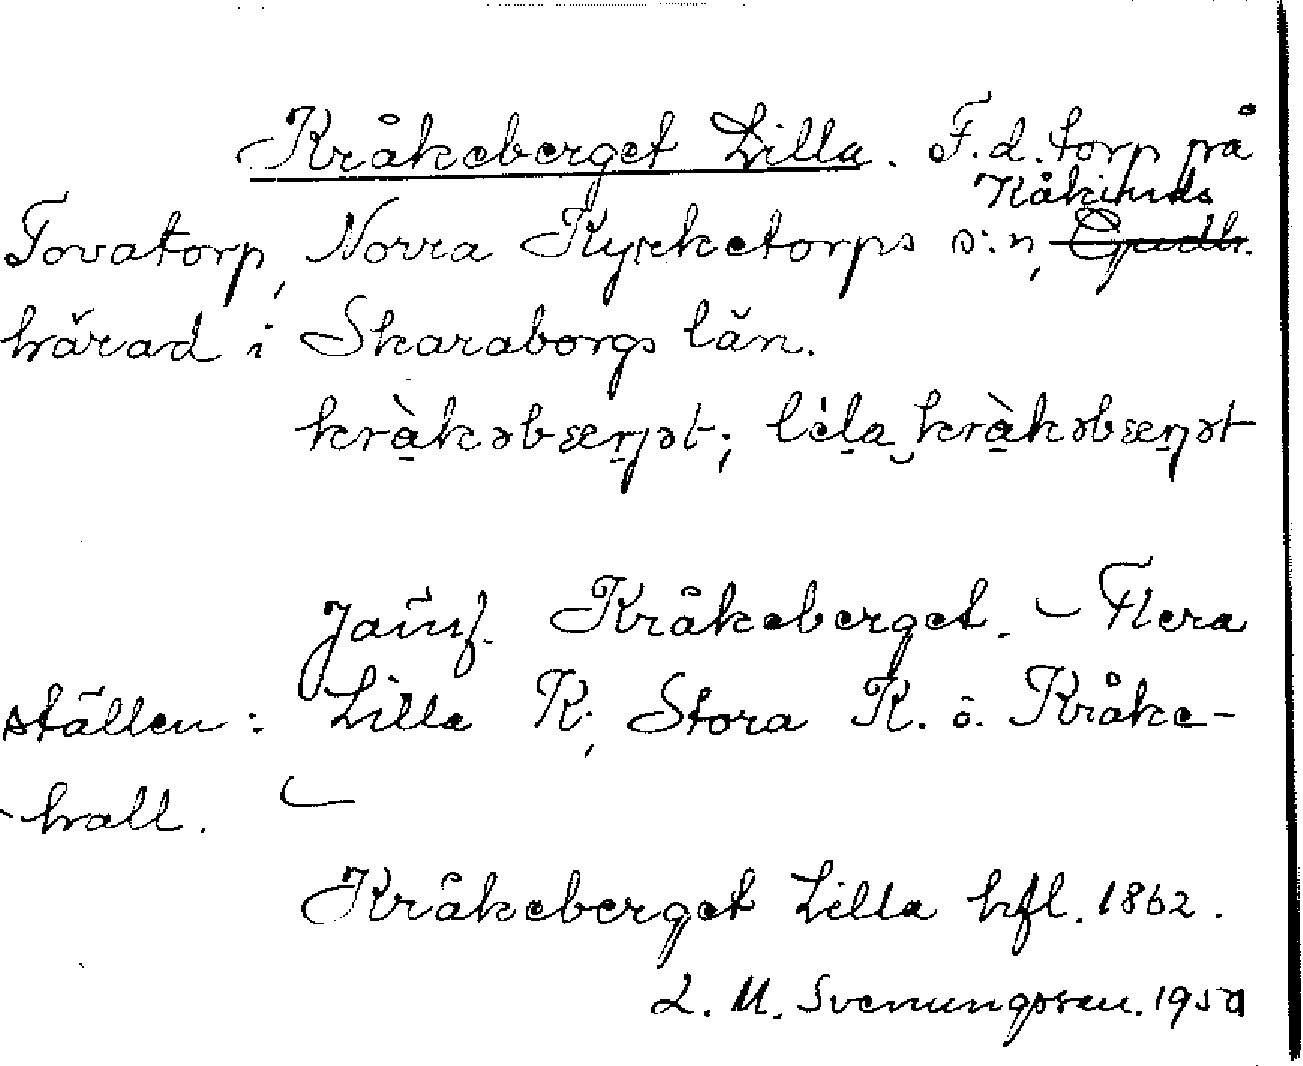 Kråkeberget Lilla. F.d. torp på
Tovatorp, Norra Kyrketorps s:n, Kåkinds
härad i Skaraborgs län.
kràkəbæŋət; lìla kràkəbæŋət
Jämf. Kråkeberget. – Flera
ställen: Lilla K., Stora K. o. Kråke-
-hall. –
Kråkeberget Lilla hfl. 1862.
L. M. Svenungsson. 1950